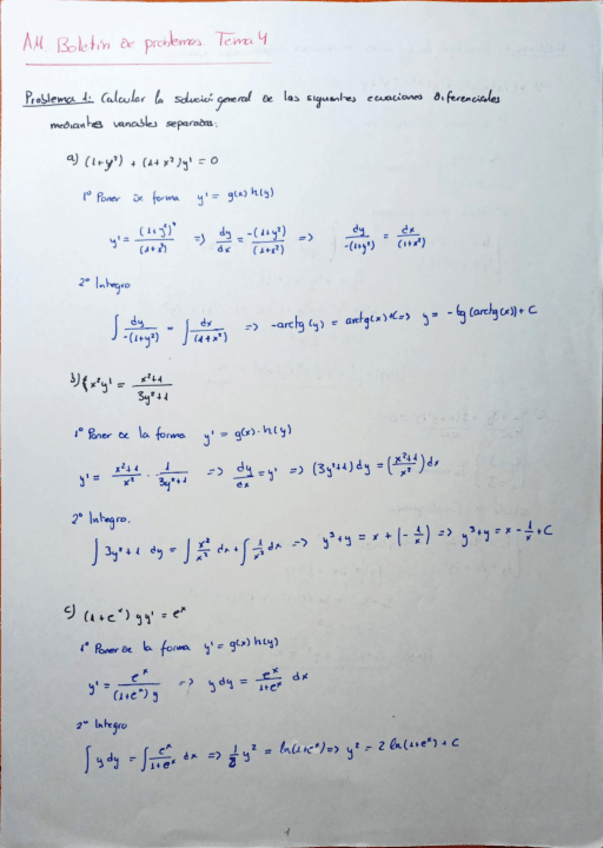 AM. Boletín de problemas. Tema 4
Problema 1: Calcular la solución general de las siguientes ecuaciones diferenciales
mediantes variables separadas:
a) (1+y²) + (1+x²)y' = 0
1º Poner de forma y' = g(x) h(y)
y' = (1+y²)⁻/(1+x²) => dy/dx = -(1+y²)/(1+x²) => dy/-(1+y²) = dx/(1+x²)
2º Integro
∫ dy/-(1+y²) = ∫ dx/(1+x²) => -arctg(y) = arctg(x)+C => y = -tg(arctg(x)) + C
b) x²y' = x²+1/3y²+1
1º Poner de la forma y' = g(x)·h(y)
y' = x²+1/x² · 1/3y²+1 => dy/dx = y' => (3y²+1) dy = (x²+1/x²) dx
2º Integro.
∫ 3y²+1 dy = ∫ x²/x² dx + ∫ 1/x² dx => y³+y = x + (-1/x) => y³+y = x - 1/x + C
c) (1+eˣ) y y' = eˣ
1º Poner de la forma y' = g(x) h(y)
y' = eˣ/(1+eˣ) y => y dy = eˣ/1+eˣ dx
2º Integro
∫ y dy = ∫ eˣ/1+eˣ dx => 1/2 y² = ln(1+eˣ) => y² = 2 ln(1+eˣ) + C
1